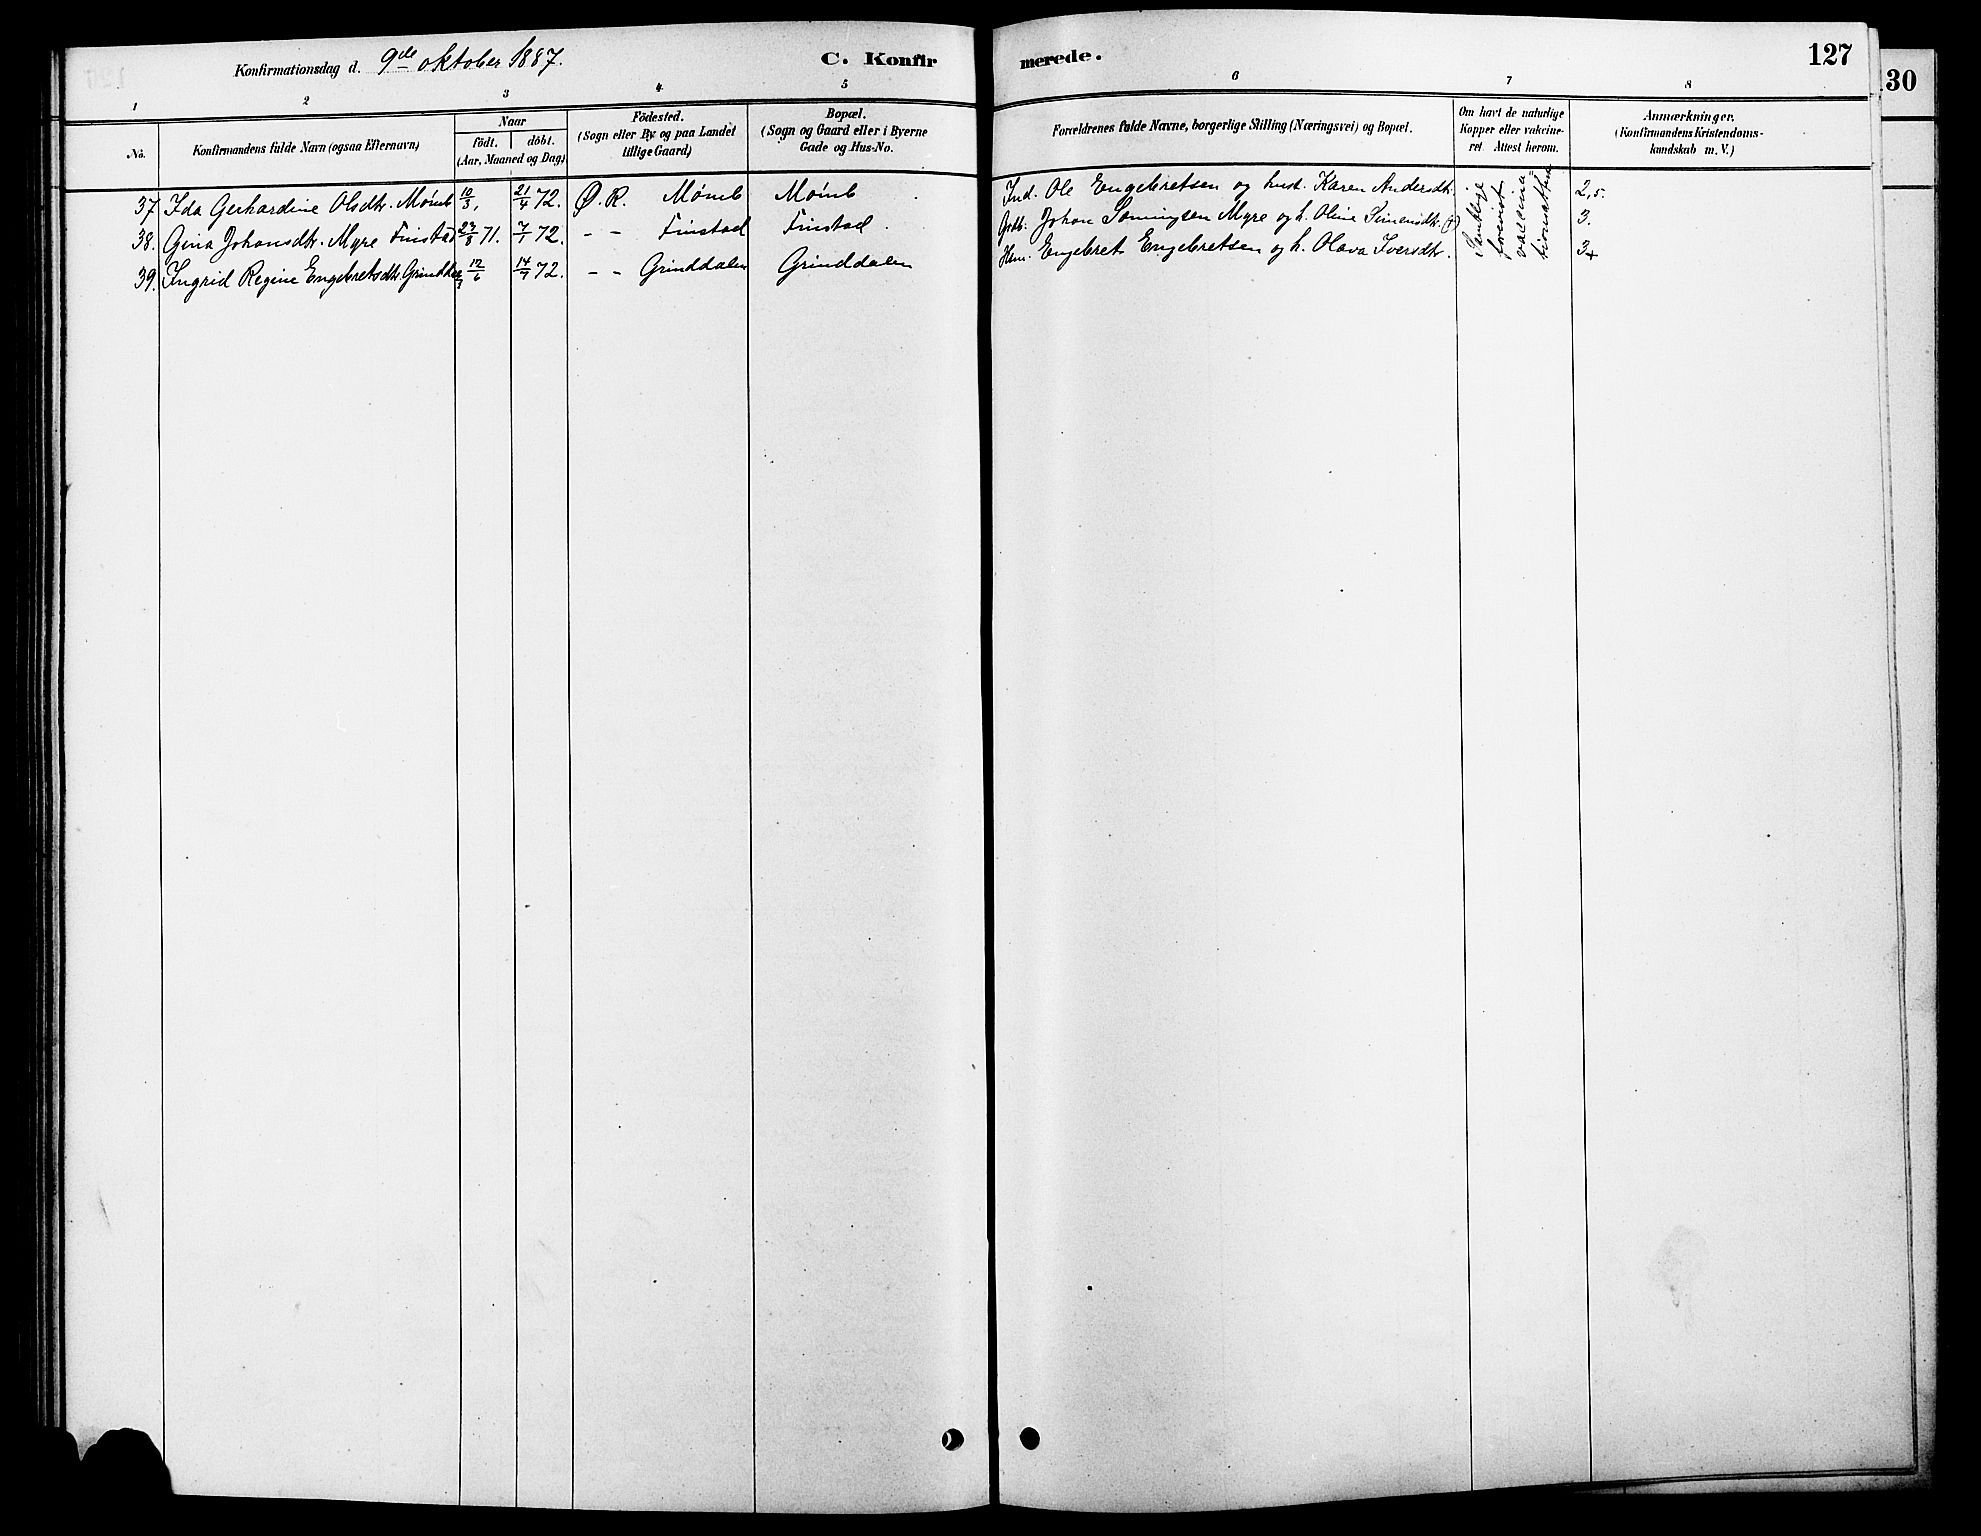 Konfirmationsdag d. 9de oktober 1887.
C. Konfirmerede.
127
30
1 2 3 4 5 6 7 8
No.
Konfirmandens fulde Navn (ogsaa Efternavn)
Naar
födt. döbt.
(Aar, Maaned og Dag)
Födested.
(Sogn eller By og paa Landet
tillige Gaard)
Bopæl.
(Sogn og Gaard eller i Byerne
Gade og Hus-No.
Forældrenes fulde Navne, borgerlige Stilling (Næringsvei) og Bopæl.
Om havt de naturlige
Kopper eller vakcine-
ret Attest herom.
Anmærkninger.
(Konfirmandens Kristendoms-
kundskab m. V.)
37 Ida Gerhardine Olsdtr. Mømb 10/3, 21/4 72. Ø. R. Mømb Mømb Ind. Ole Engebretsen og hust. Karen Andersdtr. 2,5.
38. Gina Johansdtr. Myre Finstad 71. 7/1 72. - - Finstad Finstad Johan Myre og h. Oline Simensdtr. 3.
39. Ingrid Regine Engebretsdtr. Grinddalen 12/6 14/7 72. - - Grinddalen Grinddalen Engebret Engebretsen og h. Olava Iversdtr. 3+
Samtlige
forevist
vaccina-
tionsattest